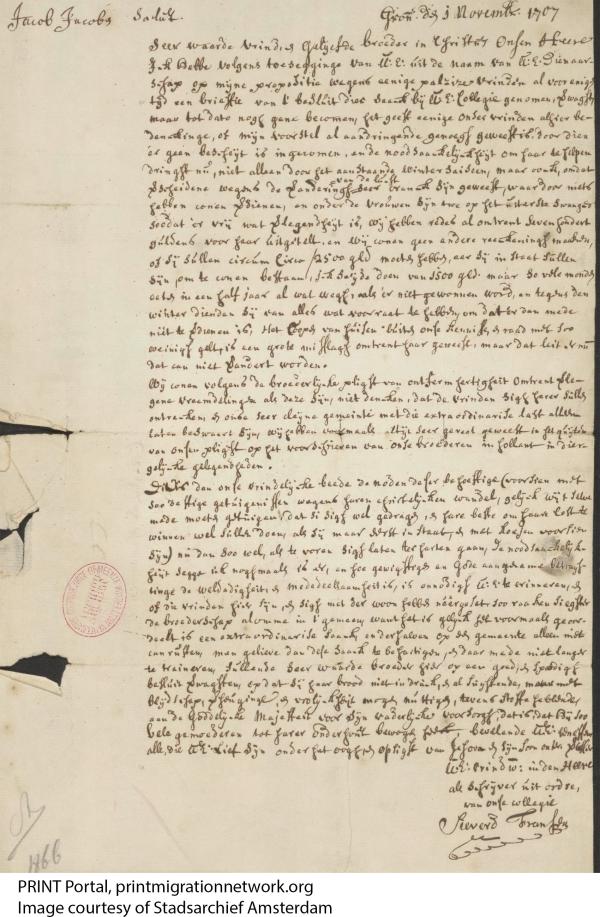 Jacob Jacobs Salut. Gron. den 1 Novembr. 1707
Seer waarde vrindt en Geliefde broeder in Christus Onsen Heere
Ik hebbe volgens toesegginge van U.E. uit de naam van U.E. Dienaar-
schap op mijne propositie wegens eenige palzize vrinden al voor enig
tijd een brieftie van 't besluit dies saack bij U.E. Collegie genomen,
maar tot dato nogh gene becomen, het geeft eenige onser vrinden alhier be-
denckinge, of mijn voorstel al aandringende genoegh geweest is. door dien
er geen bescheijt is ingecomen, en de noodsaackelijckheijt om haar te helpen
dringht nu, niet alleen door het aanstaande winter saisoen, maar oock, omdat
verscheidene wegens de veranderingh van de lucht seer kranck sijn geweest, waardoor niets
hebben conen verdienen, en onder de vrouwen sijn twe op het uiterste swanger
soodat er vrij wat gelegenheijt is, wij hebben reeds al omtrent sevenhondert
guldens voor haar uitgestelt. en wij conen geen andere reeckeningh maeken,
of sij sullen circum circa 2500 gld moeten hebben, eer sij in staat sullen
sijn, om te conen bestaan, 1500 gld. maar so vele monden
eeten in een half jaar al wat wegh, als er niet gewonnen word, en tegens den
winter dienden sij van alles wat voorraet te hebben, om dat er dan mede
niet te verdienen is, Het copen van huisen buiten onse kennisse, en raad met soo
weinigh gelt, is een grote misslagh omtrent haar geweest, maar dat leit er nu
dat can niet verandert worden.
Wij conen volgens de broederlijcke pligt van ontfermhertigheit omtrent sulc-
gene vreemdelingen als deze sijn, niet dencken, dat de vrinden sigh harer sullen
ontrecken, en onse seer cleijne gemeinte met die extraordinarise last alleen
laten beswaert sijn, wij hebben voormaels altijt seer gereet geweest in het quijten
van onsen pligt op het voorschrijven van onse broederen in hollant in dier-
gelijcke gelegendheden.
Dit is dan onse vrindelijcke beede de noden deser behoeftige (voorsien met
soo deftige getuigenissen wegens haren christelijken wandel, gelijck wij selve
mede moeten getuigen dat si sigh wel gedragen, en hare beste om haare cost te
winnen wel sullen doen, als sij maar eerst in staat, en met koejen voorsien
sijn) nu dan soo wel, als te voren sigh laten ter harten gaan, De noodsaackelijck-
heijt segge ik noghmaals is er, en hoe gewightigh en Gode aangename betragh-
tinge de weldadigheit, en mededeelsaamheit is, is onnodigh U.E. te erinneren,
of die vrinden hier sijn, en sigh met der woon hebben neergeset, soo raaken sij egter
de broederschap alomme in 't gemeen, want het is gelijck het voormaals geoor-
deelt is een extraordinarise saack, en derhalven op een gemeente alleen niet
can rusten, men gelieve dan dese saack te behartigen, en daar mede niet langer
te traineren, sullende seer waarde broeder hier op een goed, en spoedigh
besluit verwaghten, opdat sij haar brood niet in druck, en al suchtende, maar met
blijdschap, en vrolijckheijt mogen nuttigen, tevens stoffe hebbende,
aan de Goddelijcke Majesteit voor sijn vaderlijcke voorsorgh, dat is dat hij soo
vele gemoederen tot harer onderhout bewogh heeft, bevelende U.E. en
alle, die U.E. lief sijn onder het oogh, en opsigt van Jehova en sijn Son onsen
U.E. vrind in den Heere
als schrijver uit ordre,
van onse collegie
Sieverd Fransen
466
PRINT Portal, printmigrationnetwork.org
Image courtesy of Stadsarchief Amsterdam